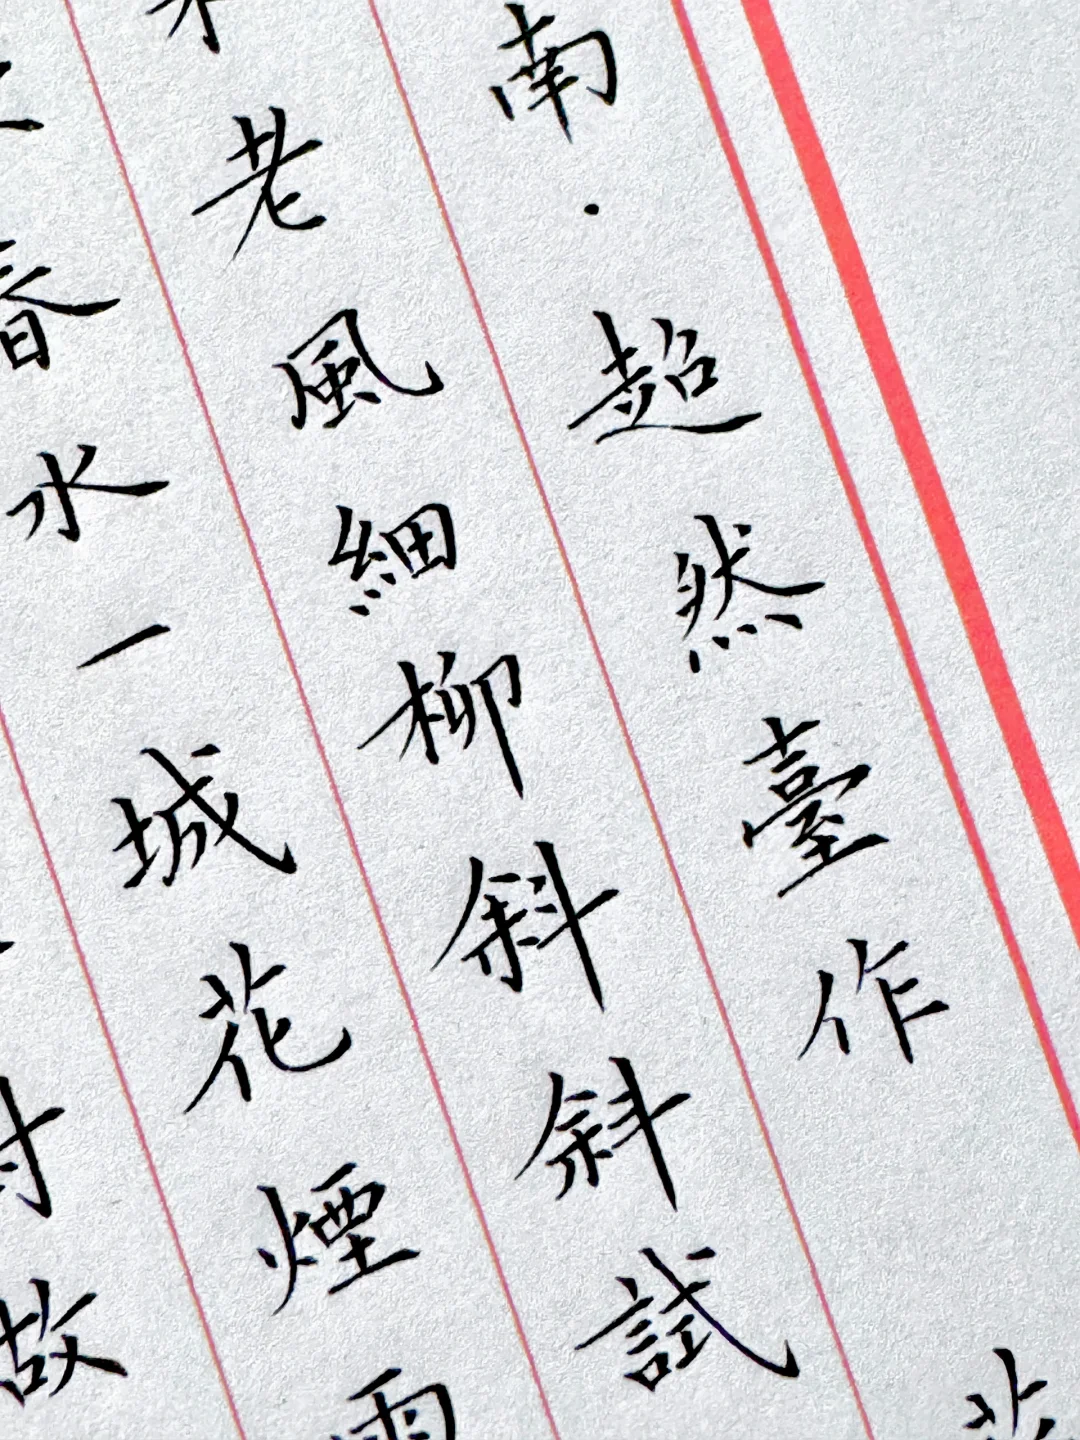 南·超然臺作
老風細柳斜斜試
春水一城花煙雨
故